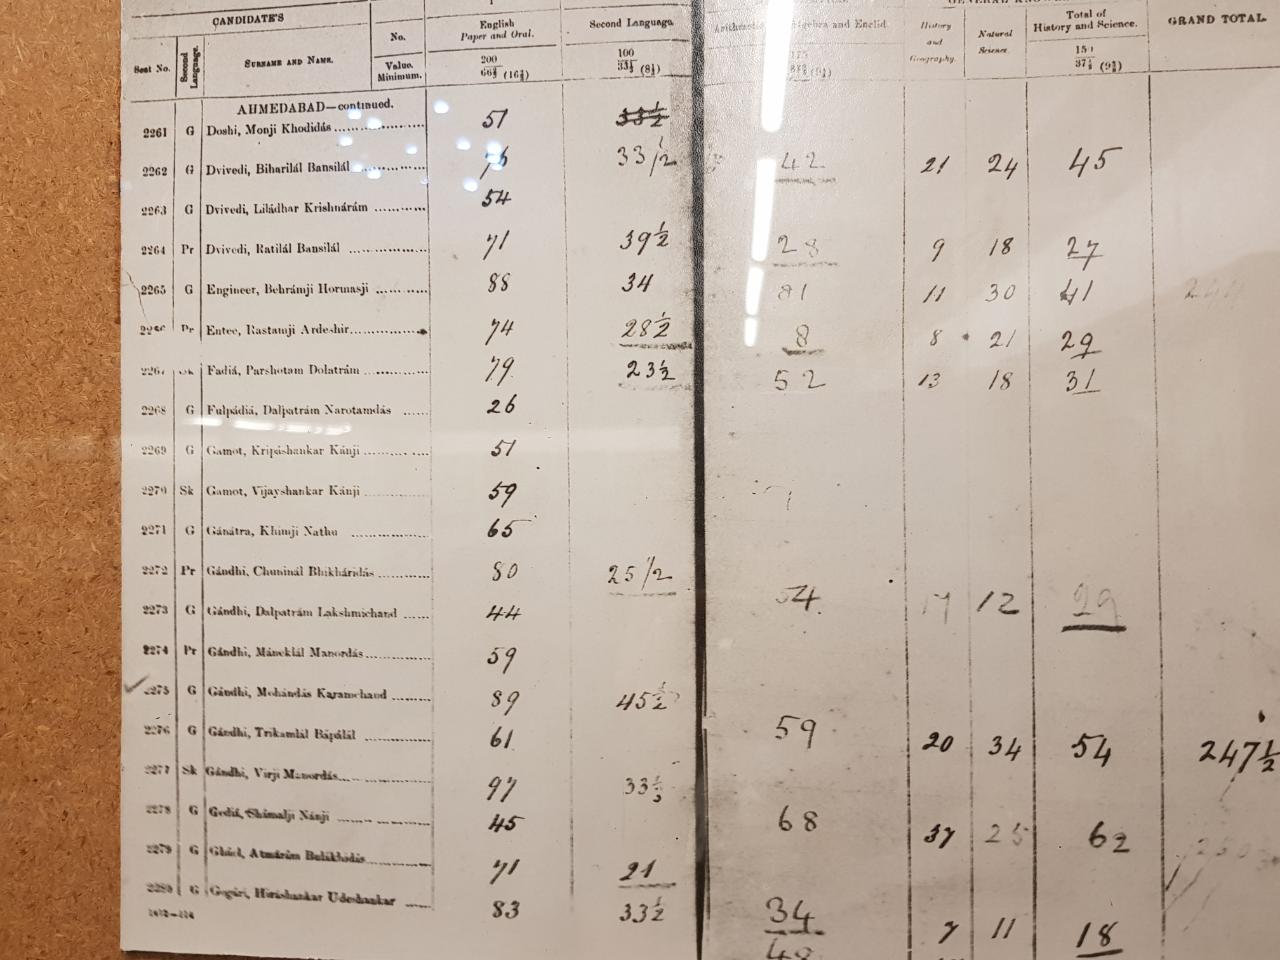 CANDIDATE'S
No.
Seat No.
Second Language.
SURNAME AND NAME.
Value.
Minimum.
English
Paper and Oral.
200
66⅔ (16⅔)
Second Language.
100
33⅓ (8⅓)
Algebra and Euclid.
175
History
and
Geography.
Natural
Science.
Total of
History and Science.
150
37½ (9⅜)
GRAND TOTAL.
AHMEDABAD—continued.
2261 G Doshi, Monji Khodidás 51 33½
2262 G Dvivedi, Biharilál Bansilál 33 1/2 42 21 24 45
2263 G Dvivedi, Liládhar Krishnárám 54
2264 Pr Dvivedi, Ratilál Bansilál 71 39½ 28 9 18 27
2265 G Engineer, Behrámji Hormasji 88 34 81 11 30 41
2266 Pr Entee, Rastamji Ardeshir 74 28½ 8 8 21 29
2267 Sk Fadiá, Parshotam Dolatrám 79 23½ 52 13 18 31
2268 G Fulpádiá, Dalpatrám Narotamdás 26
2269 G Gamot, Kripáshankar Kánji 51
2270 Sk Gamot, Vijayshankar Kánji 59
2271 G Gánátra, Khimji Nathu 65
2272 Pr Gándhi, Chuninál Bhikháridás 80 25 1/2 54 17 12 29
2273 G Gándhi, Dalpatrám Lakshmichand 44
2274 Pr Gándhi, Máneklál Manordás 59
2275 G Gándhi, Mohándás Karamchand 89 45½ 59 20 34 54 247½
2276 G Gándhi, Trikamlál Bápálál 61
2277 Sk Gándhi, Virji Manordás 97 33½ 68 37 25 62
2278 G Gediá, Shámalji Nánji 45
2279 G Ghiel, Atmárám Bulákhidás 71 21 34 7 11 18
2280 G Gogári, Hiráshankar Udeshankar 83 33½ 48